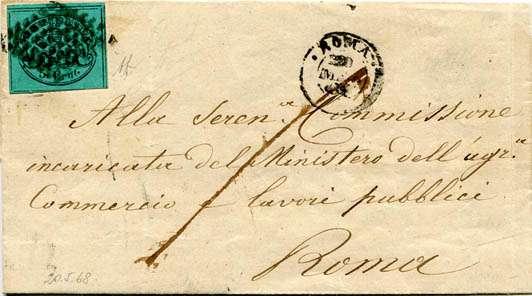 ROMA
Alla Seren.ª Commissione
incaricata del Ministero dell'agr.ª
Commercio e lavori pubblici
Roma
20.5.68